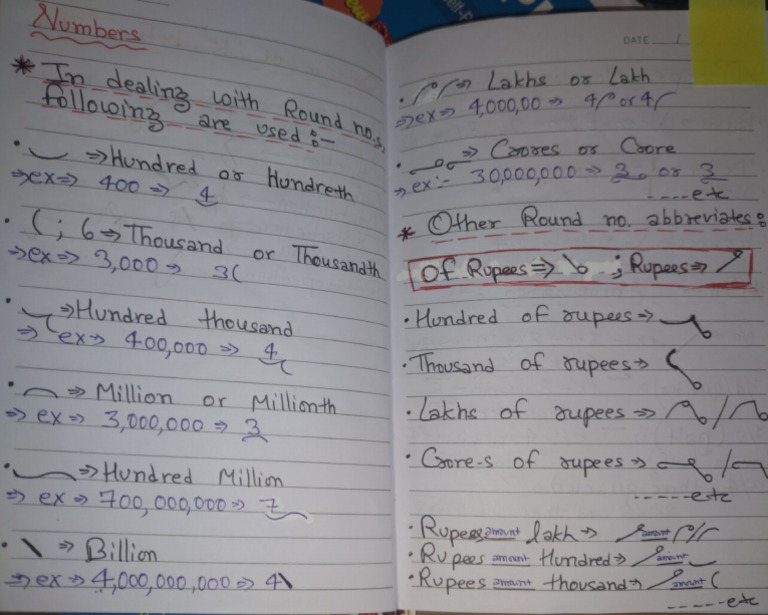 Numbers
* In dealing with Round no.s,
following are used :-
• ⇒ Hundred or Hundreth
⇒ ex ⇒ 400 ⇒ 4
• ( ; 6 ⇒ Thousand or Thousandth
⇒ ex ⇒ 3,000 ⇒ 3(
• ⇒ Hundred thousand
⇒ ex ⇒ 400,000 ⇒ 4
• ⇒ Million or Millionth
⇒ ex ⇒ 3,000,000 ⇒ 3
• ⇒ Hundred Million
⇒ ex ⇒ 700,000,000 ⇒ 7
• \ ⇒ Billion
⇒ ex ⇒ 4,000,000,000 ⇒ 4\
DATE /
• ⇒ Lakhs or Lakh
⇒ ex ⇒ 4,000,00 ⇒ 4 or 4
• ⇒ Crores or Crore
⇒ ex :- 30,000,000 ⇒ 3 or 3
-----etc
* Other Round no. abbreviates :
Of Rupees ⇒ ; Rupees ⇒
• Hundred of rupees →
• Thousand of rupees →
• Lakhs of rupees ⇒ /
• Crore-s of rupees → /
------etc
• Rupees amount lakh → amount /
• Rupees amount Hundred → amount
• Rupees amount thousand → amount (
------etc